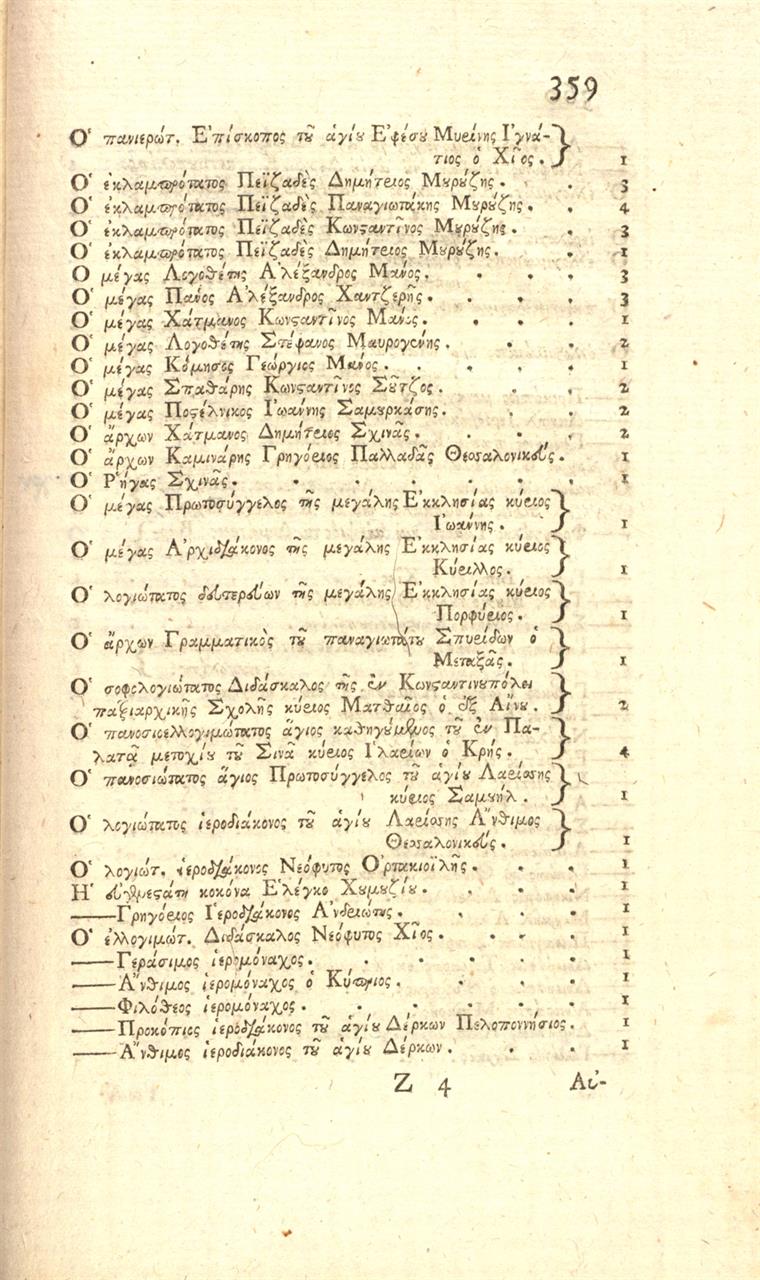 359
Ὁ πανιερώτ. Ἐπίσκοπος τοῦ ἁγίου Ἐφέσου Μυρίνης Ἰγνά-
τιος ὁ Χῖος. 1
Ὁ ἐκλαμπρότατος Πεϊζαδὲς Δημήτριος Μυρούζης. 3
Ὁ ἐκλαμπρότατος Πεϊζαδὲς Παναγιωτάκης Μυρούζης. 4
Ὁ ἐκλαμπρότατος Πεϊζαδὲς Κωνσταντῖνος Μυρούζης. 3
Ὁ ἐκλαμπρότατος Πεϊζαδὲς Δημήτριος Μυρούζης. 1
Ὁ μέγας Λογοθέτης Ἀλέξανδρος Μάνος. 3
Ὁ μέγας Πάνος Ἀλέξανδρος Χαντζερῆς. 3
Ὁ μέγας Χάτμανος Κωνσταντῖνος Μάνος. 1
Ὁ μέγας Λογοθέτης Στέφανος Μαυρογένης. 2
Ὁ μέγας Κόμησος Γεώργιος Μάνος. 1
Ὁ μέγας Σπαθάρης Κωνσταντῖνος Σοῦτζος. 2
Ὁ μέγας Ποστέλνικος Ἰωάννης Σαμουρκάσης. 2
Ὁ ἄρχων Χάτμανος Δημήτριος Σχινᾶς. 2
Ὁ ἄρχων Καμινάρης Γρηγόριος Παλλαδᾶς Θεσσαλονικεύς. 1
Ὁ Ῥήγας Σχινᾶς. 1
Ὁ μέγας Πρωτοσύγγελος τῆς μεγάλης Ἐκκλησίας κύριος
Ἰωάννης. 1
Ὁ μέγας Ἀρχιδιάκονος τῆς μεγάλης Ἐκκλησίας κύριος
Κύριλλος. 1
Ὁ λογιώτατος δευτερεύων τῆς μεγάλης Ἐκκλησίας κύριος
Πορφύριος. 1
Ὁ ἄρχων Γραμματικὸς τοῦ παναγιωτάτου Σπυρίδων ὁ
Μεταξᾶς. 1
Ὁ σοφολογιώτατος Διδάσκαλος τῆς ἐν Κωνσταντινουπόλει
πατριαρχικῆς Σχολῆς κύριος Ματθαῖος ὁ ἐξ Αἴνου. 2
Ὁ πανοσιελλογιμώτατος ἅγιος καθηγούμενος τοῦ ἐν Πα-
λατᾷ μετοχίου τοῦ Σινᾶ κύριος Ἱλαρίων ὁ Κρής. 4
Ὁ πανοσιώτατος ἅγιος Πρωτοσύγγελος τοῦ ἁγίου Λαρίσσης
κύριος Σαμουήλ. 1
Ὁ λογιώτατος ἱεροδιάκονος τοῦ ἁγίου Λαρίσσης Ἄνθιμος
Θεσσαλονικεύς. 1
Ὁ λογιώτ. ἱεροδιάκονος Νεόφυτος Ὀρτακιοϊλῆς. 1
Ἡ εὐγενεστάτη κοκόνα Ἑλέγκο Χουμουζίου. 1
——Γρηγόριος Ἱεροδιάκονος Ἀνδριώτης. 1
Ὁ ἐλλογιμώτ. Διδάσκαλος Νεόφυτος Χῖος. 1
——Γεράσιμος ἱερομόναχος. 1
——Ἄνθιμος ἱερομόναχος ὁ Κύπριος. 1
——Φιλόθεος ἱερομόναχος. 1
——Προκόπιος ἱεροδιάκονος τοῦ ἁγίου Δέρκων Πελοποννήσιος. 1
——Ἄνθιμος ἱεροδιάκονος τοῦ ἁγίου Δέρκων. 1
Ζ 4 Αὐ-